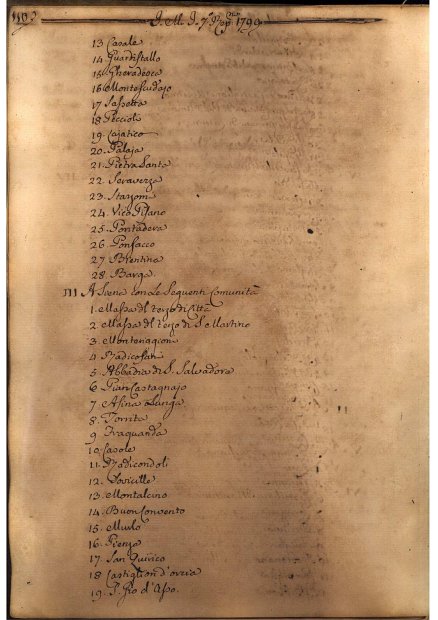 110
J. M. J. 7 1799
13 Casale
14 Guardistallo
15 Gherardesca
16 Montescudajo
17 Sassetta
18 Peccioli
19 Lajatico
20. Palaja
21. Pietra Santa
22. Seraverza
23. Stazzema
24. Vico Pisano
25. Pontadera
26. Ponsacco
27 Bientina
28. Barga.
III A Siena con Le Seguenti Comunità
1. Massa del terzo di Città
2 Massa del terzo di S. Martino
3. Monterigioni
4 Radicofani
5. Abbadia di S. Salvadore
6 Pian Castagnajo
7 Asina Lunga
8. Torrita
9. Traquanda
10 Casole
11. Radicondoli
12. Sovicille
13. Montalcino
14. Buon Convento
15. Murlo
16. Pienza
17. San Quirico
18 Castiglion d'orcia
19. S. Gio d'Asso.